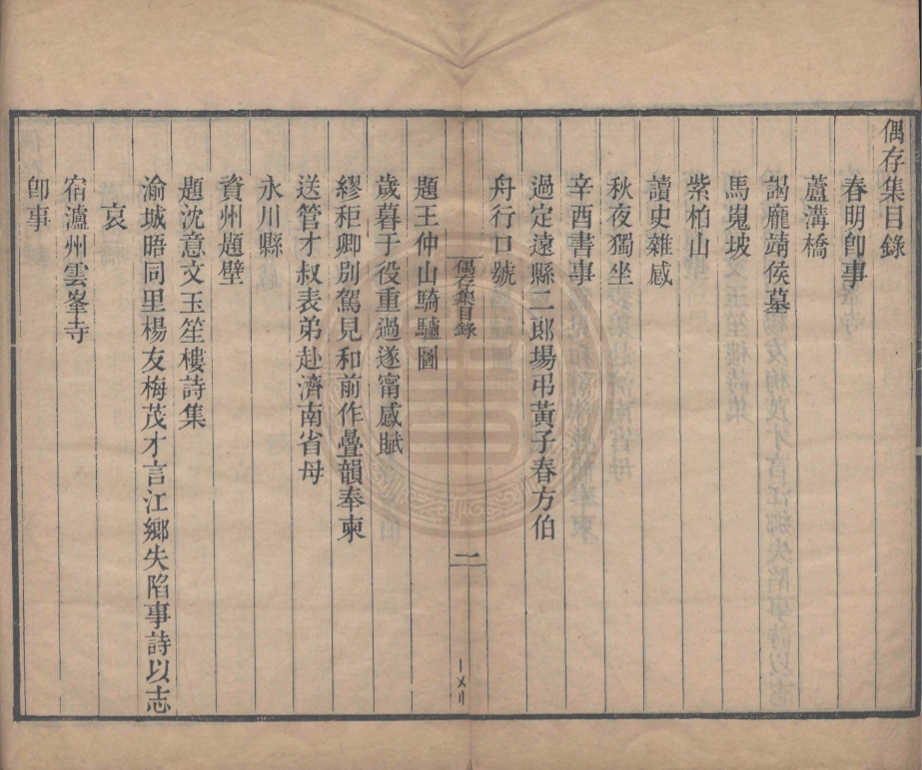 偶存集目錄
春明卽事
蘆溝橋
謁龐靖侯墓
馬嵬坡
紫柏山
讀史雜感
秋夜獨坐
辛酉書事
過定遠縣二郎場弔黃子春方伯
舟行口號
偶存集目錄
一
題王仲山騎驢圖
歲暮于役重過遂甯感賦
繆秬卿別駕見和前作疊韻奉柬
送管才叔表弟赴濟南省母
永川縣
資州題壁
題沈意文玉笙樓詩集
渝城晤同里楊友梅茂才言江鄉失陷事詩以志
哀
宿瀘州雲峯寺
卽事